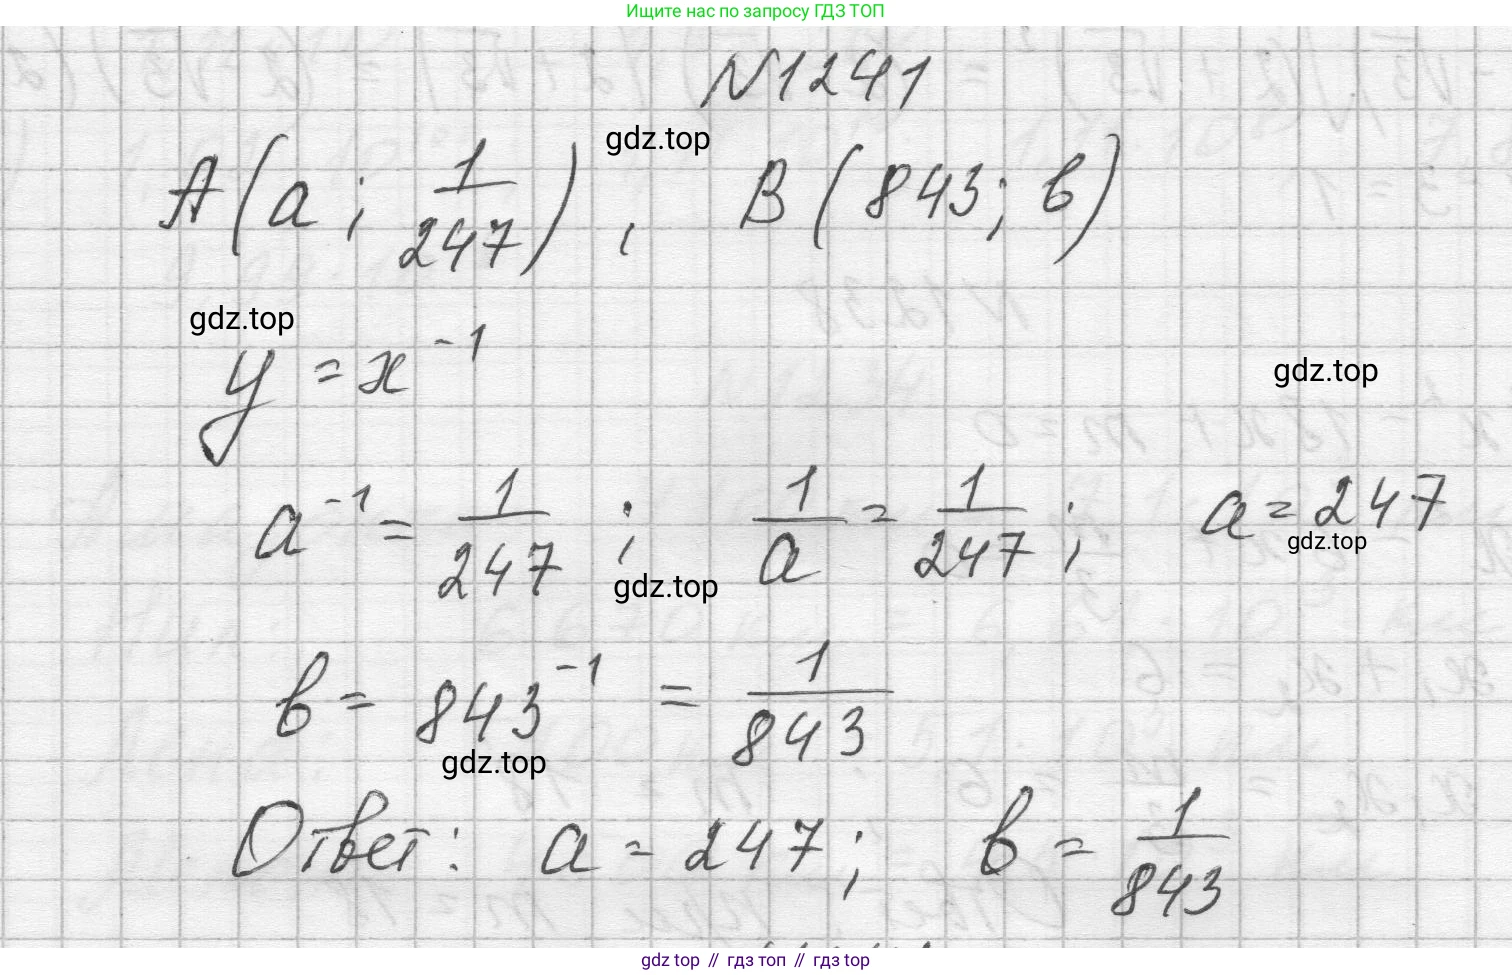 Ищите нас по запросу ГДЗ ТОП
N1241
gdz.top
A(a; 1/247), B(843; b)
gdz.top
y = x⁻¹
gdz.top
a⁻¹ = 1/247; 1/a = 1/247; a = 247
gdz.top
gdz.top
b = 843⁻¹ = 1/843
gdz.top
Ответ: a = 247; b = 1/843
gdz top // гдз топ // гдз top